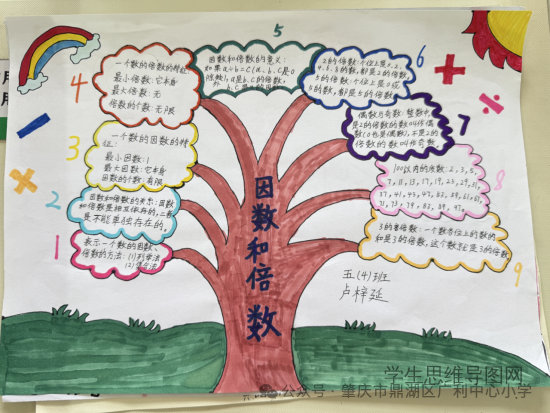 5
因数和倍数的意义:
如果a÷b=C(a、b、C是0
除外
4
一个数的倍数的特征
最小倍数:它本身
最大倍数:无
倍数的个数:无限
6
2的倍数:个位上是0、2、
4、6、8的数,都是2的倍数。
5的倍数:个位上是0或
5的数,都是5的倍数
7
偶数与奇数:整数中
是2的倍数的数叫作偶
数(0也是偶数),不是2的
倍数的数叫作奇数
3
一个数的因数的特
征:
最小因数:1
最大因数:它本身
因数的个数:有限
8
100以内的质数:2,3,5,
7,11,13,17,19,23,29,31,
37,41,43,47,53,59,61,67,
71,73,79,83,89,97。
2
因数和倍数的关系:因数
和倍数是相互依存的,二者
是不能单独存在的。
1
表示一个数的因数、
倍数的方法:(1)列举法
(2)集合法
9
3的倍数:一个数各位上的数的
和是3的倍数,这个数就是3的倍数
因数和倍数
五(4)班
卢梓延
学生思维导图网
公众号·肇庆市鼎湖区广利中心小学